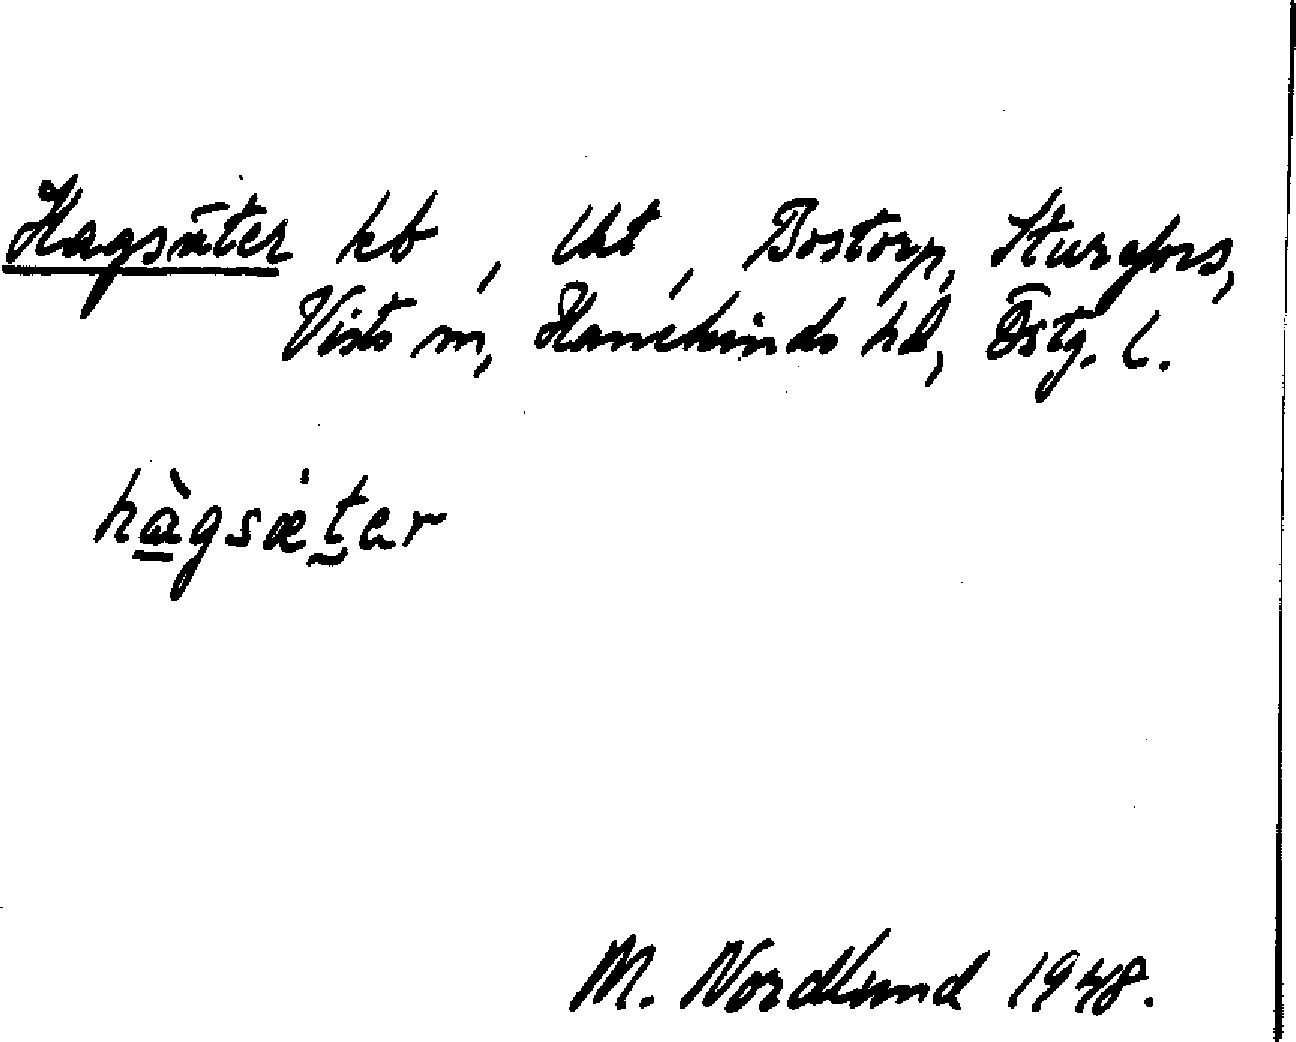 Hagsäter hb, Uht, Bostorp, Sturefors,
Vists sn, Hanekinds hd, Östg. l.
hàgsæ̀ter
M. Nordlund 1948.